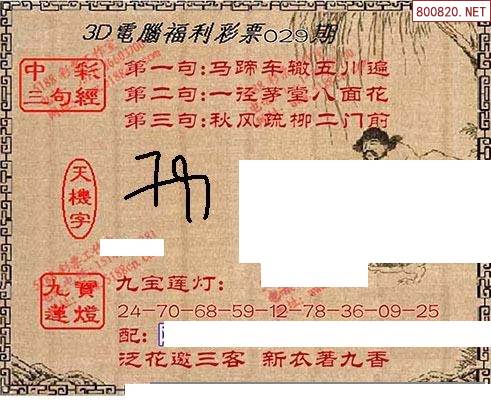 800820.NET
3D電腦福利彩票029期
中彩
三句經
第一句:马蹄车辙五川遍
第二句:一径茅堂八面花
第三句:秋风疏柳二门前
天機字
九寶
蓮燈
九宝莲灯:
24-70-68-59-12-78-36-09-25
配:
泛花邀三客 新衣著九香